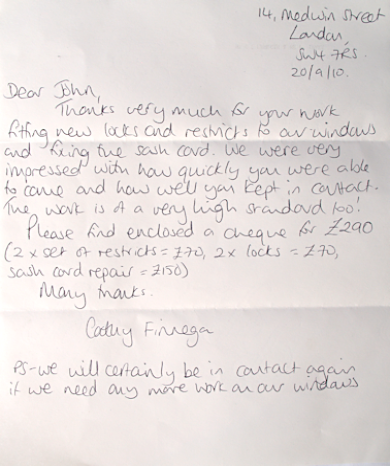 14, Medwin Street
London,
SW4 7RS.
20/9/10.
Dear John,
Thanks very much for your work
fitting new locks and restricts to our windows
and fixing the sash cord. We were very
impressed with how quickly you were able
to come and how well you kept in contact.
The work is of a very high standard too!
Please find enclosed a cheque for £290
(2 x set of restricts = £70, 2x locks = £70,
sash cord repair = £150)
Many thanks.
Cathy Finnega
PS - we will certainly be in contact again
if we need any more work on our windows